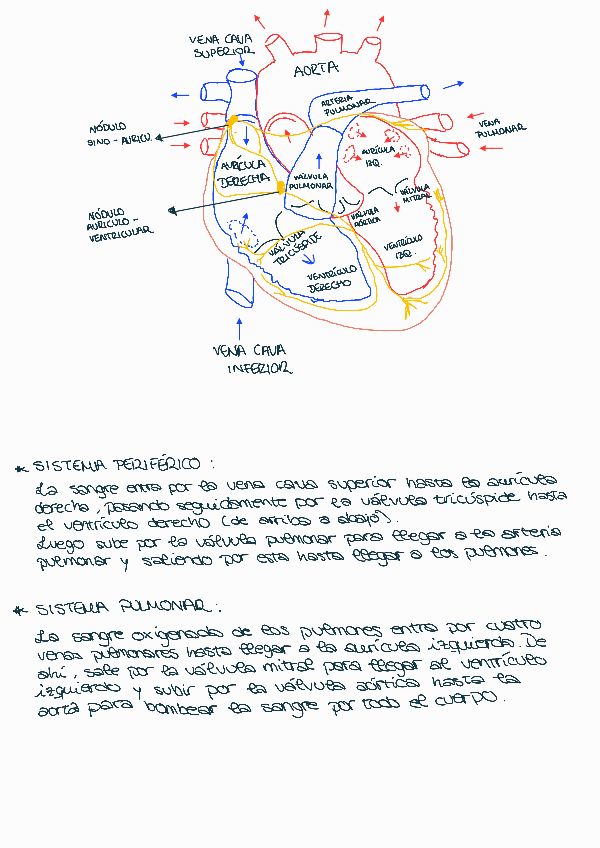 VENA CAVA
SUPERIOR
AORTA
ARTERIA
PULMONAR
NÓDULO
SINO - AURICU.
VENA
PULMONAR
AURÍCULA
IZQ.
AURÍCULA
DERECHA
VÁLVULA
PULMONAR
VÁLVULA
MITRAL
NÓDULO
AURICULO -
VENTRICULAR
VÁLVULA
AÓRTICA
VÁLVULA
TRICÚSPIDE
VENTRÍCULO
IZQ.
VENTRÍCULO
DERECHO
VENA CAVA
INFERIOR
* SISTEMA PERIFÉRICO :
La sangre entra por la vena cava superior hasta la aurícula
derecha, pasando seguidamente por la válvula tricúspide hasta
el ventrículo derecho (de arriba a abajo).
Luego sube por la válvula pulmonar para llegar a la arteria
pulmonar y saliendo por esta hasta llegar a los pulmones.
* SISTEMA PULMONAR :
La sangre oxigenada de los pulmones entra por cuatro
venas pulmonares hasta llegar a la aurícula izquierda. De
ahí, sale por la válvula mitral para llegar al ventrículo
izquierdo y subir por la válvula aórtica hasta la
aorta para bombear la sangre por todo el cuerpo.